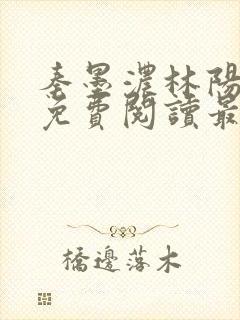 秦墨濃林陽
免費閱讀最
橋邊落木